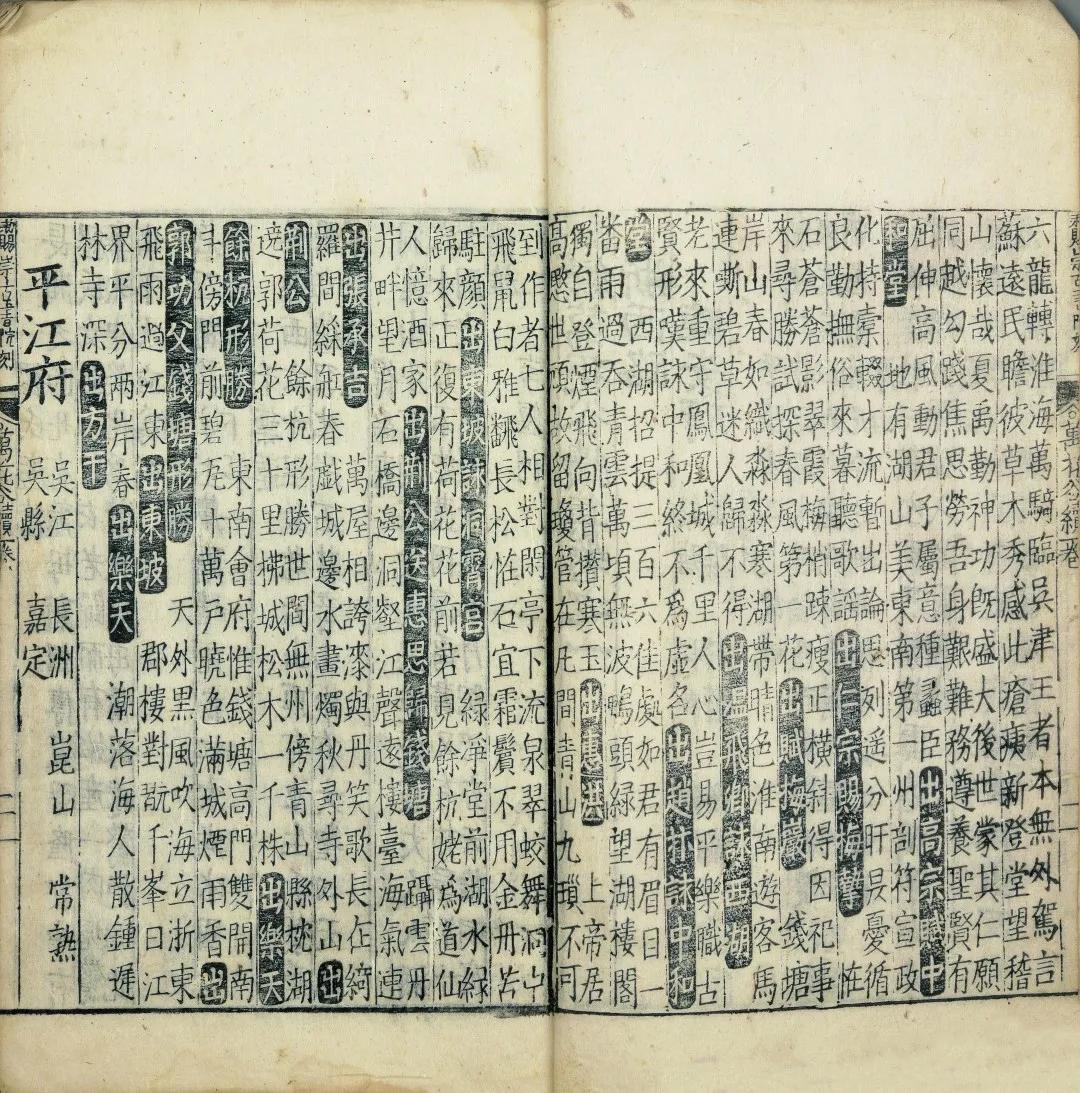 六龍轉淮海萬騎臨吳津王者本無外駕言
蘇遠民瞻彼草木秀感此瘡痍新登堂望稽
山懷哉夏禹勤神功既盛大後世蒙其仁願
同越勾踐焦思勞吾身艱難務遵養聖賢有
屈伸高風動君子屬意種蠡臣 出高宗賜中
和堂 地有湖山美東南第一州剖符宣政
化持橐輟才流暫出論思列遥分旰昃憂循
良勤撫俗來暮聽歌謡 出仁宗賜梅摯 惟
石蒼蒼影翠霞梅梢踈瘦正横斜得因祀事
來尋勝試探春風第一花 出賦梅巖 錢塘
岸山春如織淼淼寒湖帶晴色淮南遊客馬
連嘶碧草迷人歸不得 出温飛卿詠西湖
老來重守鳳凰城千里人心豈易平樂職古
賢形嘆詠中和終不為虚名 出趙抃詠中和
堂 西湖招提三百六佳處如君有眉目一
番雨過吞青雲萬頃無波鴨頭緑望湖樓閣
獨自登煙飛向背攢寒玉 出惠洪 上帝居
高愍世頑故留瓊管在凡間青山九鎖不可
到作者七人相對閑亭下流泉翠蛟舞洞中
飛鼠白雅飜長松怪石宜霜鬢不用金丹苦
駐顔 出東坡詠洞霄宮 緑淨堂前湖水緑
歸來正復有荷花花前若見餘杭姥爲道仙
人憶酒家 出荆公送惠思歸錢塘 躡雲丹
井畔望月石橋邊洞壑江聲遠樓臺海氣連
出張承吉 萬屋相誇漆與丹笑歌長在綺
羅間綵舫春戯城邊水畫燭秋尋寺外山 出
荆公 餘杭形勝世間無州傍青山縣枕湖
遶郭荷花三十里拂城松木一千株 出樂天
餘杭形勝 東南會府惟錢塘高門雙開南
斗傍門前碧瓦十萬戸曉色滿城煙雨香 出
郭功父錢塘形勝 天外黑風吹海立浙東
飛雨過江東 出東坡 郡樓對翫千峯日江
界平分兩岸春 出樂天 潮落海人散鍾遲
林寺深 出方干
平江府
吳江 長洲 崑山 常熟
吳縣 嘉定